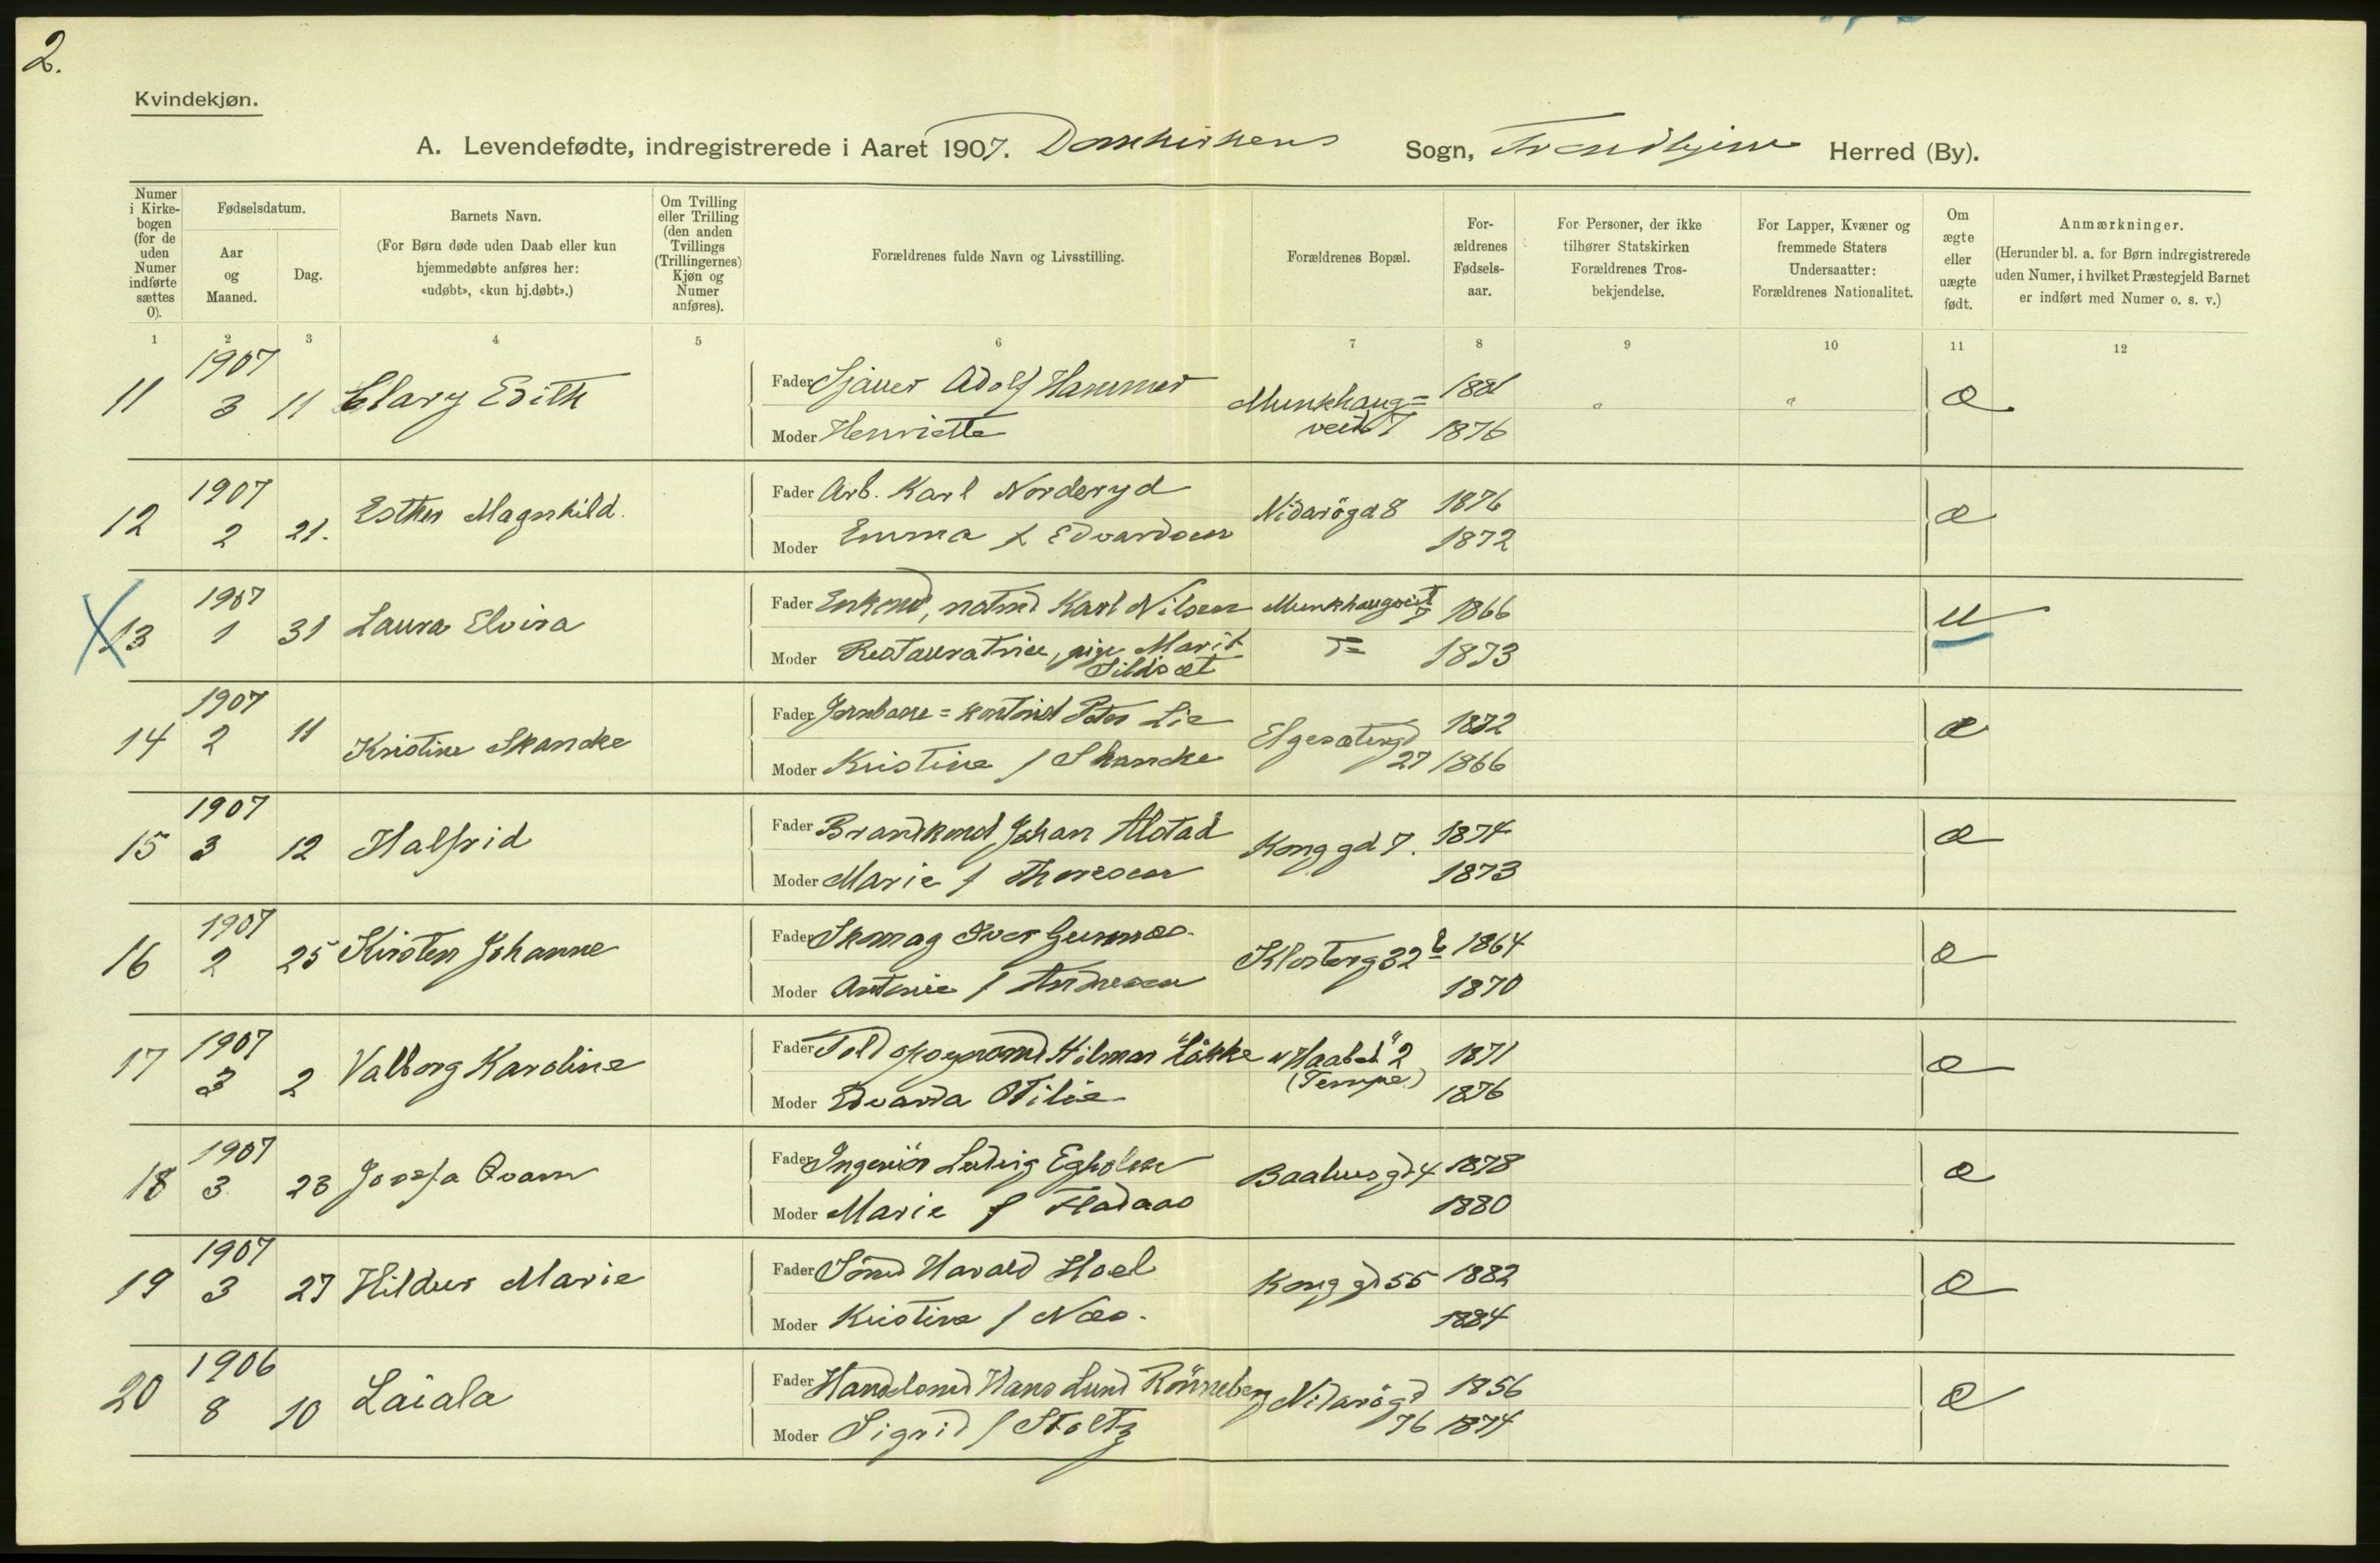 2.
Kvindekjøn.
A. Levendefødte, indregistrerede i Aaret 1907. Domkirkens Sogn, Trondhjem Herred (By).
Numer i Kirkebogen (for de uden Numer indførte sættes 0).
Fødselsdatum.
Aar og Maaned.
Dag.
Barnets Navn.
(For Børn døde uden Daab eller kun hjemmedøbte anføres her: «udøbt», «kun hj.døbt».)
Om Tvilling eller Trilling (den anden Tvillings (Trillingernes) Kjøn og Numer anføres).
Forældrenes fulde Navn og Livsstilling.
Forældrenes Bopæl.
For-ældrenes Fødsels-aar.
For Personer, der ikke tilhører Statskirken Forældrenes Tros-bekjendelse.
For Lapper, Kvæner og fremmede Staters Undersaatter: Forældrenes Nationalitet.
Om ægte eller uægte født.
Anmærkninger.
(Herunder bl. a. for Børn indregistrerede uden Numer, i hvilket Præstegjeld Barnet er indført med Numer o. s. v.)
1 2 3 4 5 6 7 8 9 10 11 12
11 1907 3 11 Clary Edith Fader Sjauer Adolf Hammer Munkhaug= 1881 " " æ
Moder Henriette veit 7 1876
12 1907 2 21. Esther Magnhild. Fader Arb. Karl Norderyd Nidarögd 8 1876 æ
Moder Emma f Edvardsen 1872
13 1907 1 31 Laura Elvira Fader Enkemd, Karl Nilsen Munkhaugveit 7 1866 u
Moder Restauratrice, pige Marit Sildset 1873
14 1907 2 11 Kristine Skancke Fader Jernbane=kontorist Peter Lie Elgesætergd 1872 æ
Moder Kristine f Skancke 27 1866
15 1907 3 12 Halfrid Fader Brandkonst Johan Alstad Kong gd 7. 1874 æ
Moder Marie f Thoresen 1873
16 1907 2 25 Kirsten Johanne Fader Skomag Iver Gunnes Klosterg 32 b 1864 æ
Moder Antonie f Andresen 1870
17 1907 3 2 Valborg Karoline Fader Hilmar Løkke "Haabet" 2 1871 æ
Moder Edvarda Otilie (Tempe) 1876
18 1907 3 23 Josefa Qvam Fader Ingeniör Ludvig Egholm Baahusgd 4 1878 æ
Moder Marie f Fladaas 1880
19 1907 3 27 Hildur Marie Fader Sömd Harald Hoel Kong gd 55 1882 æ
Moder Kristine f Næs. 1884
20 1906 8 10 Laiala Fader Handelsmd Hans Lund Rönneberg Nidarögd 1856 æ
Moder Sigrid f Stoltz 76 1874